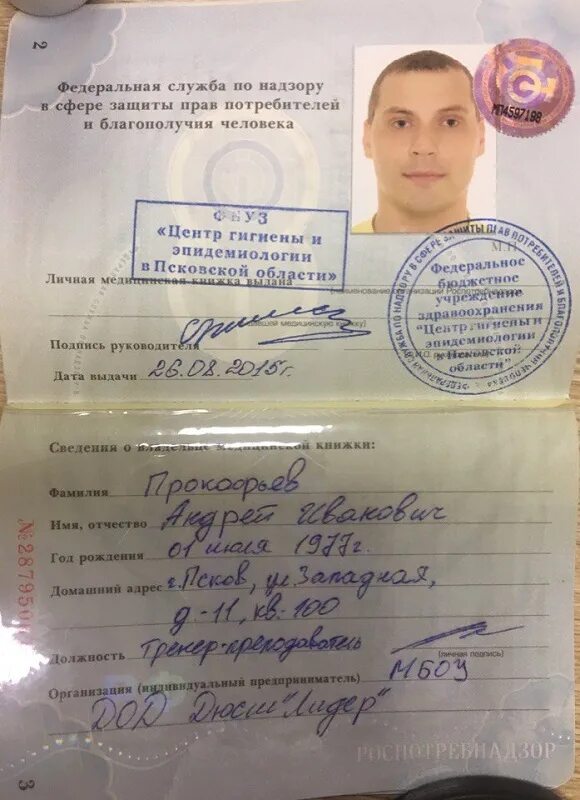 2
Федеральная служба по надзору
в сфере защиты прав потребителей
и благополучия человека
МП4597198
ФБУЗ
«Центр гигиены и
эпидемиологии
в Псковской области»
Личная медицинская книжка выдана
(наименование организации Роспотребнадзора,
медицинскую книжку)
М.П.
Федеральное
бюджетное
учреждение
здравоохранения
"Центр гигиены и
эпидемиологии
в Псковской
области"
Подпись руководителя
Дата выдачи 26.08.2015г.
Сведения о владельце медицинской книжки:
Фамилия Прокофьев
Имя, отчество Андрей Иванович
Год рождения 01 июля 1977г.
Домашний адрес г.Псков, ул.Западная,
д-11, кв-100
Должность тренер-преподаватель
(личная подпись)
Организация (индивидуальный предприниматель) МБОУ
ДОД Дюсш "Лидер"
РОСПОТРЕБНАДЗОР
№287950
3